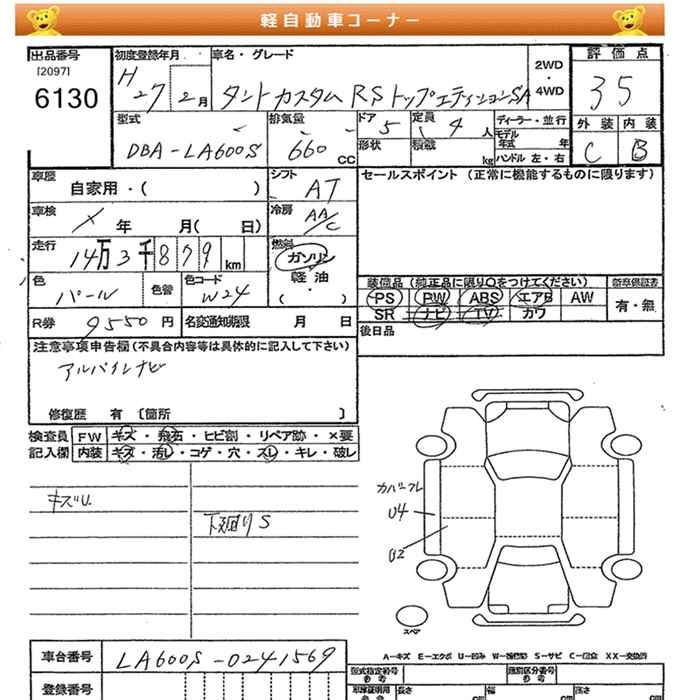 軽自動車コーナー
出品番号 初度登録年月 車名・グレード 2WD・4WD 評価点
[2097] 6130 H27 2月 タントカスタム RSトップエディションSA 35
型式 排気量 ドア 5 定員 4人 ディーラー・並行 外装 内装
DBA-LA600S 660 CC 形状 積載 kg モデル年式 年 C B
ハンドル 左・右
車歴 自家用・( ) シフト AT セールスポイント (正常に機能するものに限ります)
車検 年 月( 日) 冷房 AAC
走行 14万3千879km 燃料 ガソリン
軽油
・( )
色 パール 色替 色コード W24 装備品 (純正品に限り○をつけてください) 新車保証書
PS PW ABS エアB AW 有・無
R券 9550円 名変通知期限 月 日 SR ナビ TV カワ
後日品
注意事項申告欄 (不具合内容等は具体的に記入して下さい)
アルパインナビ
修復歴 有 〔箇所 〕
検査員 FW キズ・飛石・ヒビ割・リペア跡・×要
記入欄 内装 キズ・汚レ・コゲ・穴・スレ・キレ・破レ
キズU
下廻りS
カバーフレ
U4
U2
スペア
A-キズ E-エクボ U-凹み W-補修跡 S-サビ C-腐食 XX-交換済
車台番号 LA600S-0241569
型式指定番号 参考 類別区分番号 参考
登録番号
長さ 幅 高さ